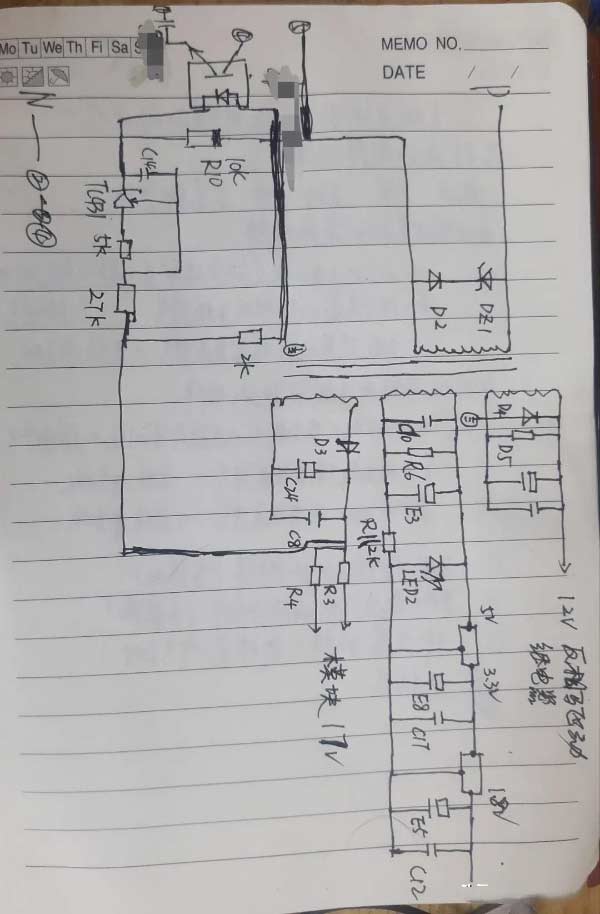 Mo Tu We Th Fr Sa
MEMO NO.
DATE / /
P
N
C14
TL431
5k
27k
10k
R10
2k
D2
DZ1
D3
C24
C8
R4
R3
模块 17V
R6
E3
R11 2K
LED2
5V
3.3V
E8
C17
1.8V
E5
C12
D4
D5
12V
继电器